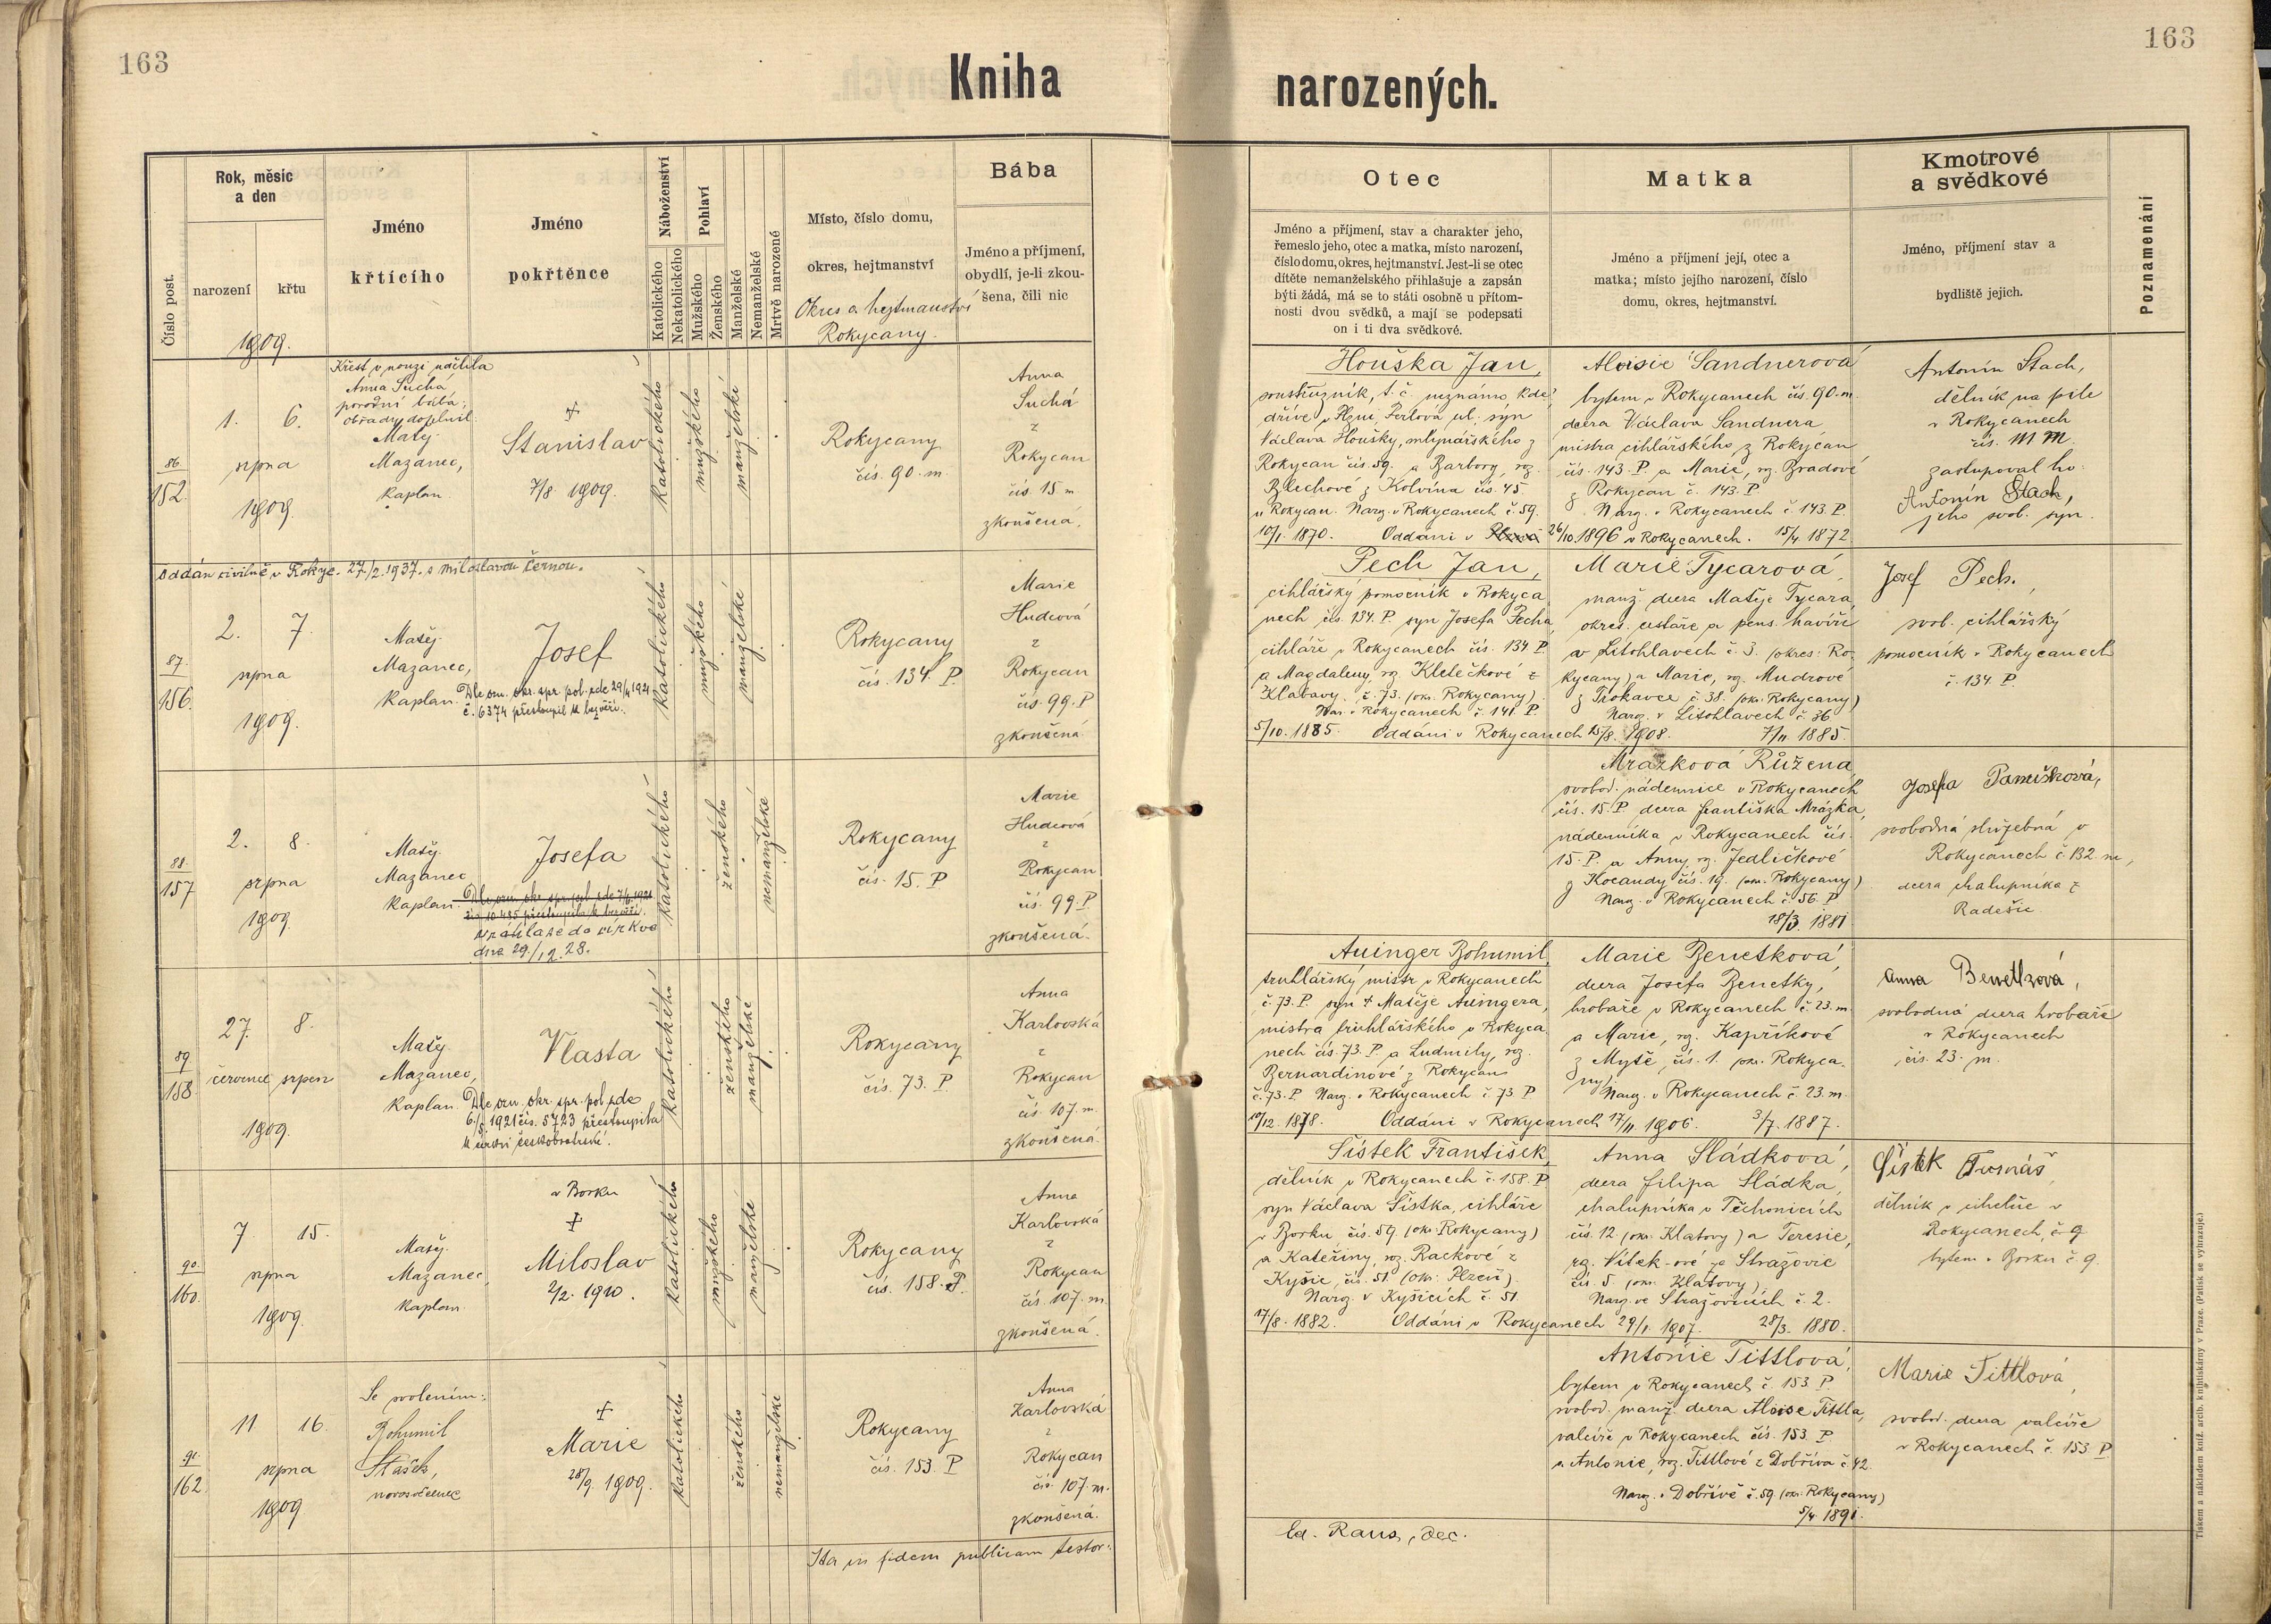 163
163
Kniha
narozených.
Číslo post.
Rok, měsíc
a den
narození
křtu
Jméno
křtícího
Jméno
pokřtěnce
Náboženství
Katolického
Nekatolického
Pohlaví
Mužského
Ženského
Manželské
Nemanželské
Mrtvě narozené
Místo, číslo domu,
okres, hejtmanství
Okres a hejtmanství
Rokycany.
Bába
Jméno a příjmení,
obydlí, je-li zkou-
šena, čili nic
Otec
Jméno a příjmení, stav a charakter jeho,
řemeslo jeho, otec a matka, místo narození,
číslo domu, okres, hejtmanství. Jest-li se otec
dítěte nemanželského přihlašuje a zapsán
býti žádá, má se to státi osobně u přítom-
nosti dvou svědků, a mají se podepsati
on i ti dva svědkové.
Matka
Jméno a příjmení její, otec a
matka; místo jejího narození, číslo
domu, okres, hejtmanství.
Kmotrové
a svědkové
Jméno, příjmení stav a
bydliště jejich.
Poznamenání
1909.
86.
152.
1. 6.
srpna
1909
Křest v nouzi udělila
Anna Suchá,
porodní bába;
obřady doplnil
Matěj
Mazanec,
kaplan.
+
Stanislav
7/8 1909.
katolického
mužského
manželské
Rokycany
čís. 90. m.
Anna
Suchá
z
Rokycan
čís 15 m
zkoušená.
Houška Jan,
soustružník, t. č. neznámo kde,
dříve v Plzni, Perlová ul., syn
Václava Houšky, mlynářského z
Rokycan čís. 59. a Barbory, roz.
Blechové z Kolvína čís. 45.
u Rokycan. Naroz. v Rokycanech č. 59.
10/1. 1870. Oddáni v 26/10. 1896 v Rokycanech. 15/4 1872
Aloisie Sandnerová
bytem v Rokycanech čís. 90. m.
dcera Václava Sandnera,
mistra cihlářského z Rokycan
čís. 143. P. a Marie, roz. Bradové
z Rokycan č. 143. P
Naroz. v Rokycanech č 143. P.
Antonín Stach,
dělník na pile
v Rokycanech
čís.
zastupoval ho:
Antonín Stach,
jeho svob. syn.
Oddán civilně v Rokyc. 27./2.1937. s Miloslavou Černou.
87.
156.
2. 7.
srpna
1909.
Matěj
Mazanec,
kaplan.
Josef
Dle ozn. okr. spr. pol. zde 29/4 1921
č. 6374 přestoupil k bezvěří.
katolického
mužského
manželské
Rokycany
čís. 134. P.
Marie
Hudcová
z
Rokycan
čís. 99. P
zkoušená
Pech Jan,
cihlářský pomocník v Rokyca
nech čís. 134. P. syn Josefa Pecha,
cihláře v Rokycanech čís. 134 P.
a Magdaleny, roz. Kletečkové z
Klabavy č. 73. (okr. Rokycany).
Nar. v Rokycanech č. 141. P.
5/10. 1885. Oddáni v Rokycanech 15/8. 1908. 7/11. 1885.
Marie Tycarová,
manž. dcera Matěje Tycara,
okres. cestáře a pens. havíře
v Litohlavech č. 3. (okres: Ro
kycany) a Marie, roz. Mudrové
z Trokavce č. 38. (okr. Rokycany)
Naroz. v Litohlavech č. 36
Josef Pech,
svob. cihlářský
pomocník v Rokycanech
č. 134. P.
88.
157
2. 8.
srpna
1909.
Matěj
Mazanec
kaplan.
Josefa
Dle ozn. okr. spr. pol. zde 7/6 1921
čís. 10.435 přestoupila k bezvěří.
Vrátila se do církve
dne 29./12.28.
katolického
ženského
nemanželské
Rokycany
čís. 15. P
Marie
Hudcová
z
Rokycan
čís. 99 P
zkoušená.
Mrázková Růžena,
svobod. nádennice v Rokycanech
čís. 15. P. dcera Františka Mrázka,
nádenníka v Rokycanech čís.
15. P. a Anny, roz. Jedličkové
z Kocandy čís. 19. (okr. Rokycany)
Naroz. v Rokycanech č. 56. P
18/3. 1881
Josefa Panušková,
svobodná služebná v
Rokycanech č. 132 m,
dcera chalupníka z
Radešic.
89
158.
27. 8.
červenec srpen
1909.
Matěj
Mazanec,
kaplan.
Vlasta
Dle ozn. okr. spr. pol. zde
6./5. 1921 čís. 5723 přestoupila
k církvi českobratrské.
katolického
ženského
manželské
Rokycany
čís. 73. P
Anna
Karlovská
z
Rokycan
čís 107. m.
zkoušená.
Auinger Bohumil,
truhlářský mistr v Rokycanech
č. 73. P. syn + Matěje Auingera,
mistra truhlářského v Rokyca
nech čís. 73. P. a Ludmily, roz.
Bernardinové z Rokycan
č. 73. P Naroz. v Rokycanech č. 73 P
10/12. 1878. Oddáni v Rokycanech 17/11. 1906. 3/7. 1887.
Marie Benetková,
dcera Josefa Benetky,
hrobaře v Rokycanech č. 23. m.
a Marie, roz. Kapříkové
z Mýtě, čís. 1. (okr. Rokyca-
ny).
Naroz. v Rokycanech č. 23. m.
Anna Benetková,
svobodná dcera hrobaře
v Rokycanech
čís. 23. m.
90.
160.
7. 15.
srpna
1909.
Matěj
Mazanec,
kaplan.
v Borku
+
Miloslav
2/2. 1910.
katolického
mužského
manželské
Rokycany
čís. 158. P.
Anna
Karlovská
z
Rokycan
čís. 107. m.
zkoušená.
Šístek František,
dělník v Rokycanech č. 158. P.
syn Václava Šístka, cihláře
v Borku čís. 59 (okr. Rokycany)
a Kateřiny, roz. Rackové z
Kyšic, čís. 51. (okr. Plzeň).
Naroz. v Kyšicích č. 51
17/8. 1882. Oddáni v Rokycanech 29/1. 1907. 28/3. 1880.
Anna Sládková,
dcera Filipa Sládka,
chalupníka v Těchonicích
čís. 12 (okr. Klatovy) a Teresie,
roz. Vítek-ové ze Stražovic
čís. 5. (okr. Klatovy)
Naroz. ve Stražovicích č. 2.
Šístek Tomáš,
dělník v cihelně v
Rokycanech, č 9
bytem v Borku č 9.
91.
162
11 16.
srpna
1909
Se svolením:
Bohumil
Stašek,
novosvěcenec
+
Marie
28/9. 1909.
katolického
ženského
nemanželské
Rokycany
čís. 153. P
Anna
Karlovská
z
Rokycan
čís. 107. m.
zkoušená.
Antonie Tittlová,
bytem v Rokycanech č. 153. P.
svobod. manž. dcera Aloise Tittla,
valcíře v Rokycanech čís. 153. P
a Antonie, roz. Tittlové z Dobříva č. 42.
Naroz. v Dobřívě č. 59 (okr. Rokycany)
5/4. 1891.
Marie Tittlová,
svobod. dcera valcíře
v Rokycanech č. 153. P
Ita in fidem publicam testor:
Ed. Raus, dec.
Tiskem a nákladem kníž. arcib. knihtiskárny v Praze. (Patisk se vyhrazuje.)